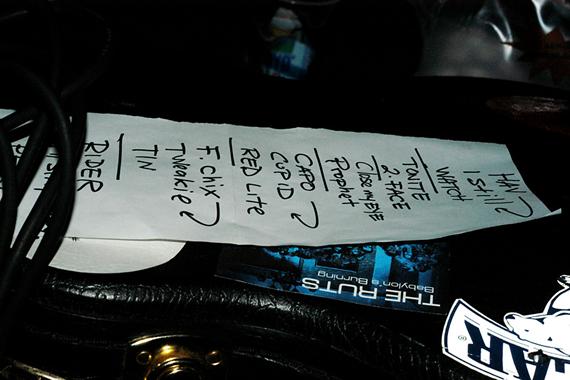 I Still
WATCH
TONITE
2 FACE
Close my EYE
Prophet
CAPO
CUPID
RED Lite
F. Chix
TIN
RIDER
THE RUTS
Babylon's Burning